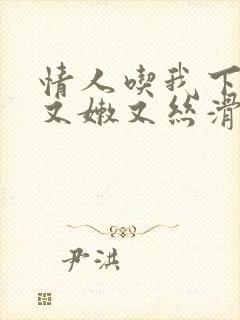 情人喫我下
又嫩又丝滑
尹洪